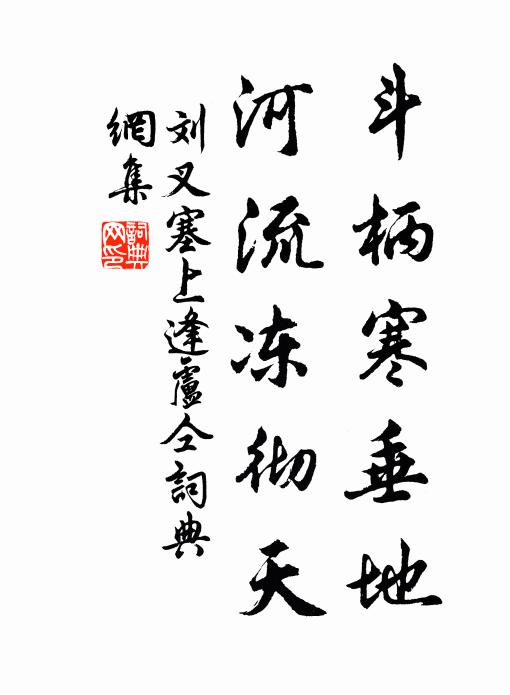 斗柄寒垂地
河流冻彻天
刘叉塞上逢卢仝詞典
網集
詞典网印